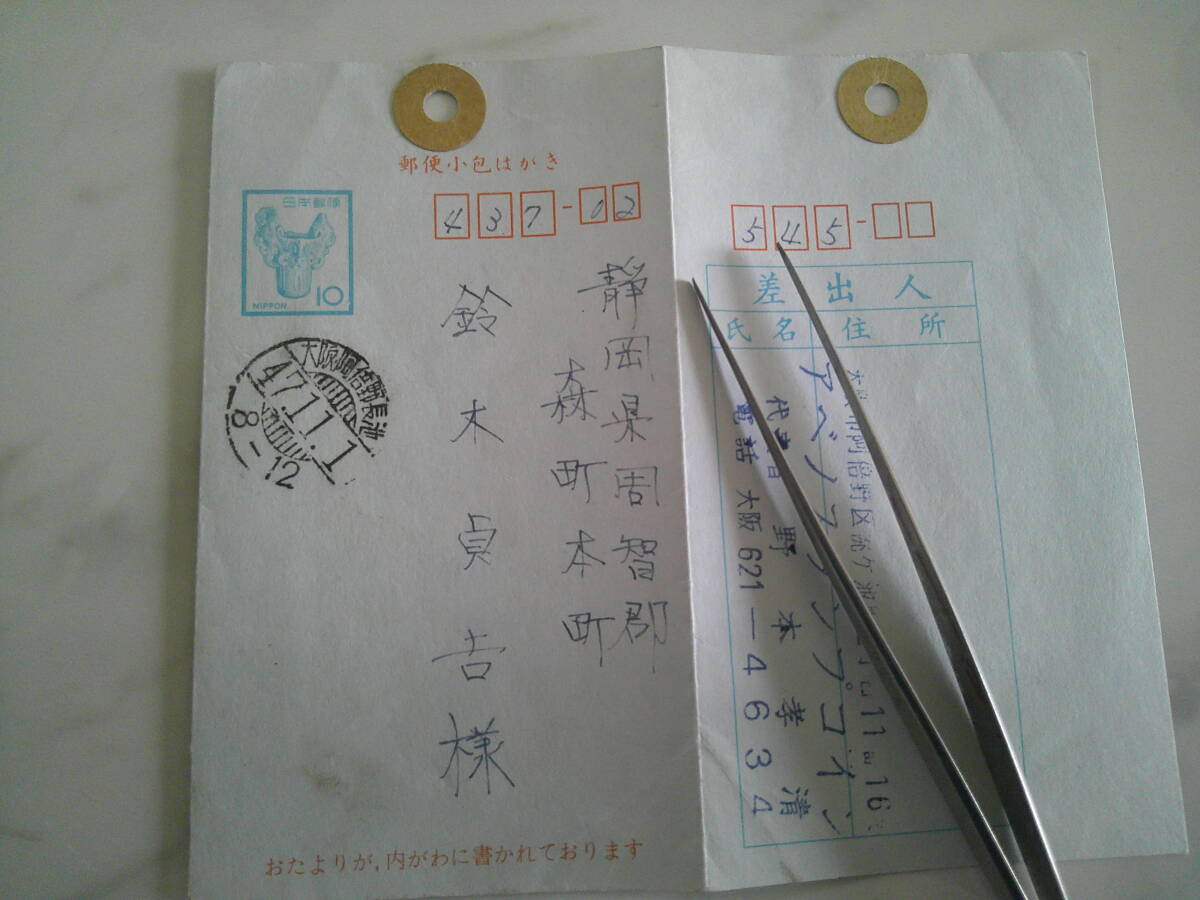 郵便小包はがき
日本郵便
10
NIPPON
437-02
静岡県周智郡
森町本町
鈴木貞吉様
大阪阿倍野長池
47.11.1
8-12
おたよりが,内がわに書かれております
545-
差出人
氏名 住所
市阿倍野区 11 16
アベノスタンプコイン
代表者 野本孝清
電話 大阪621-4634